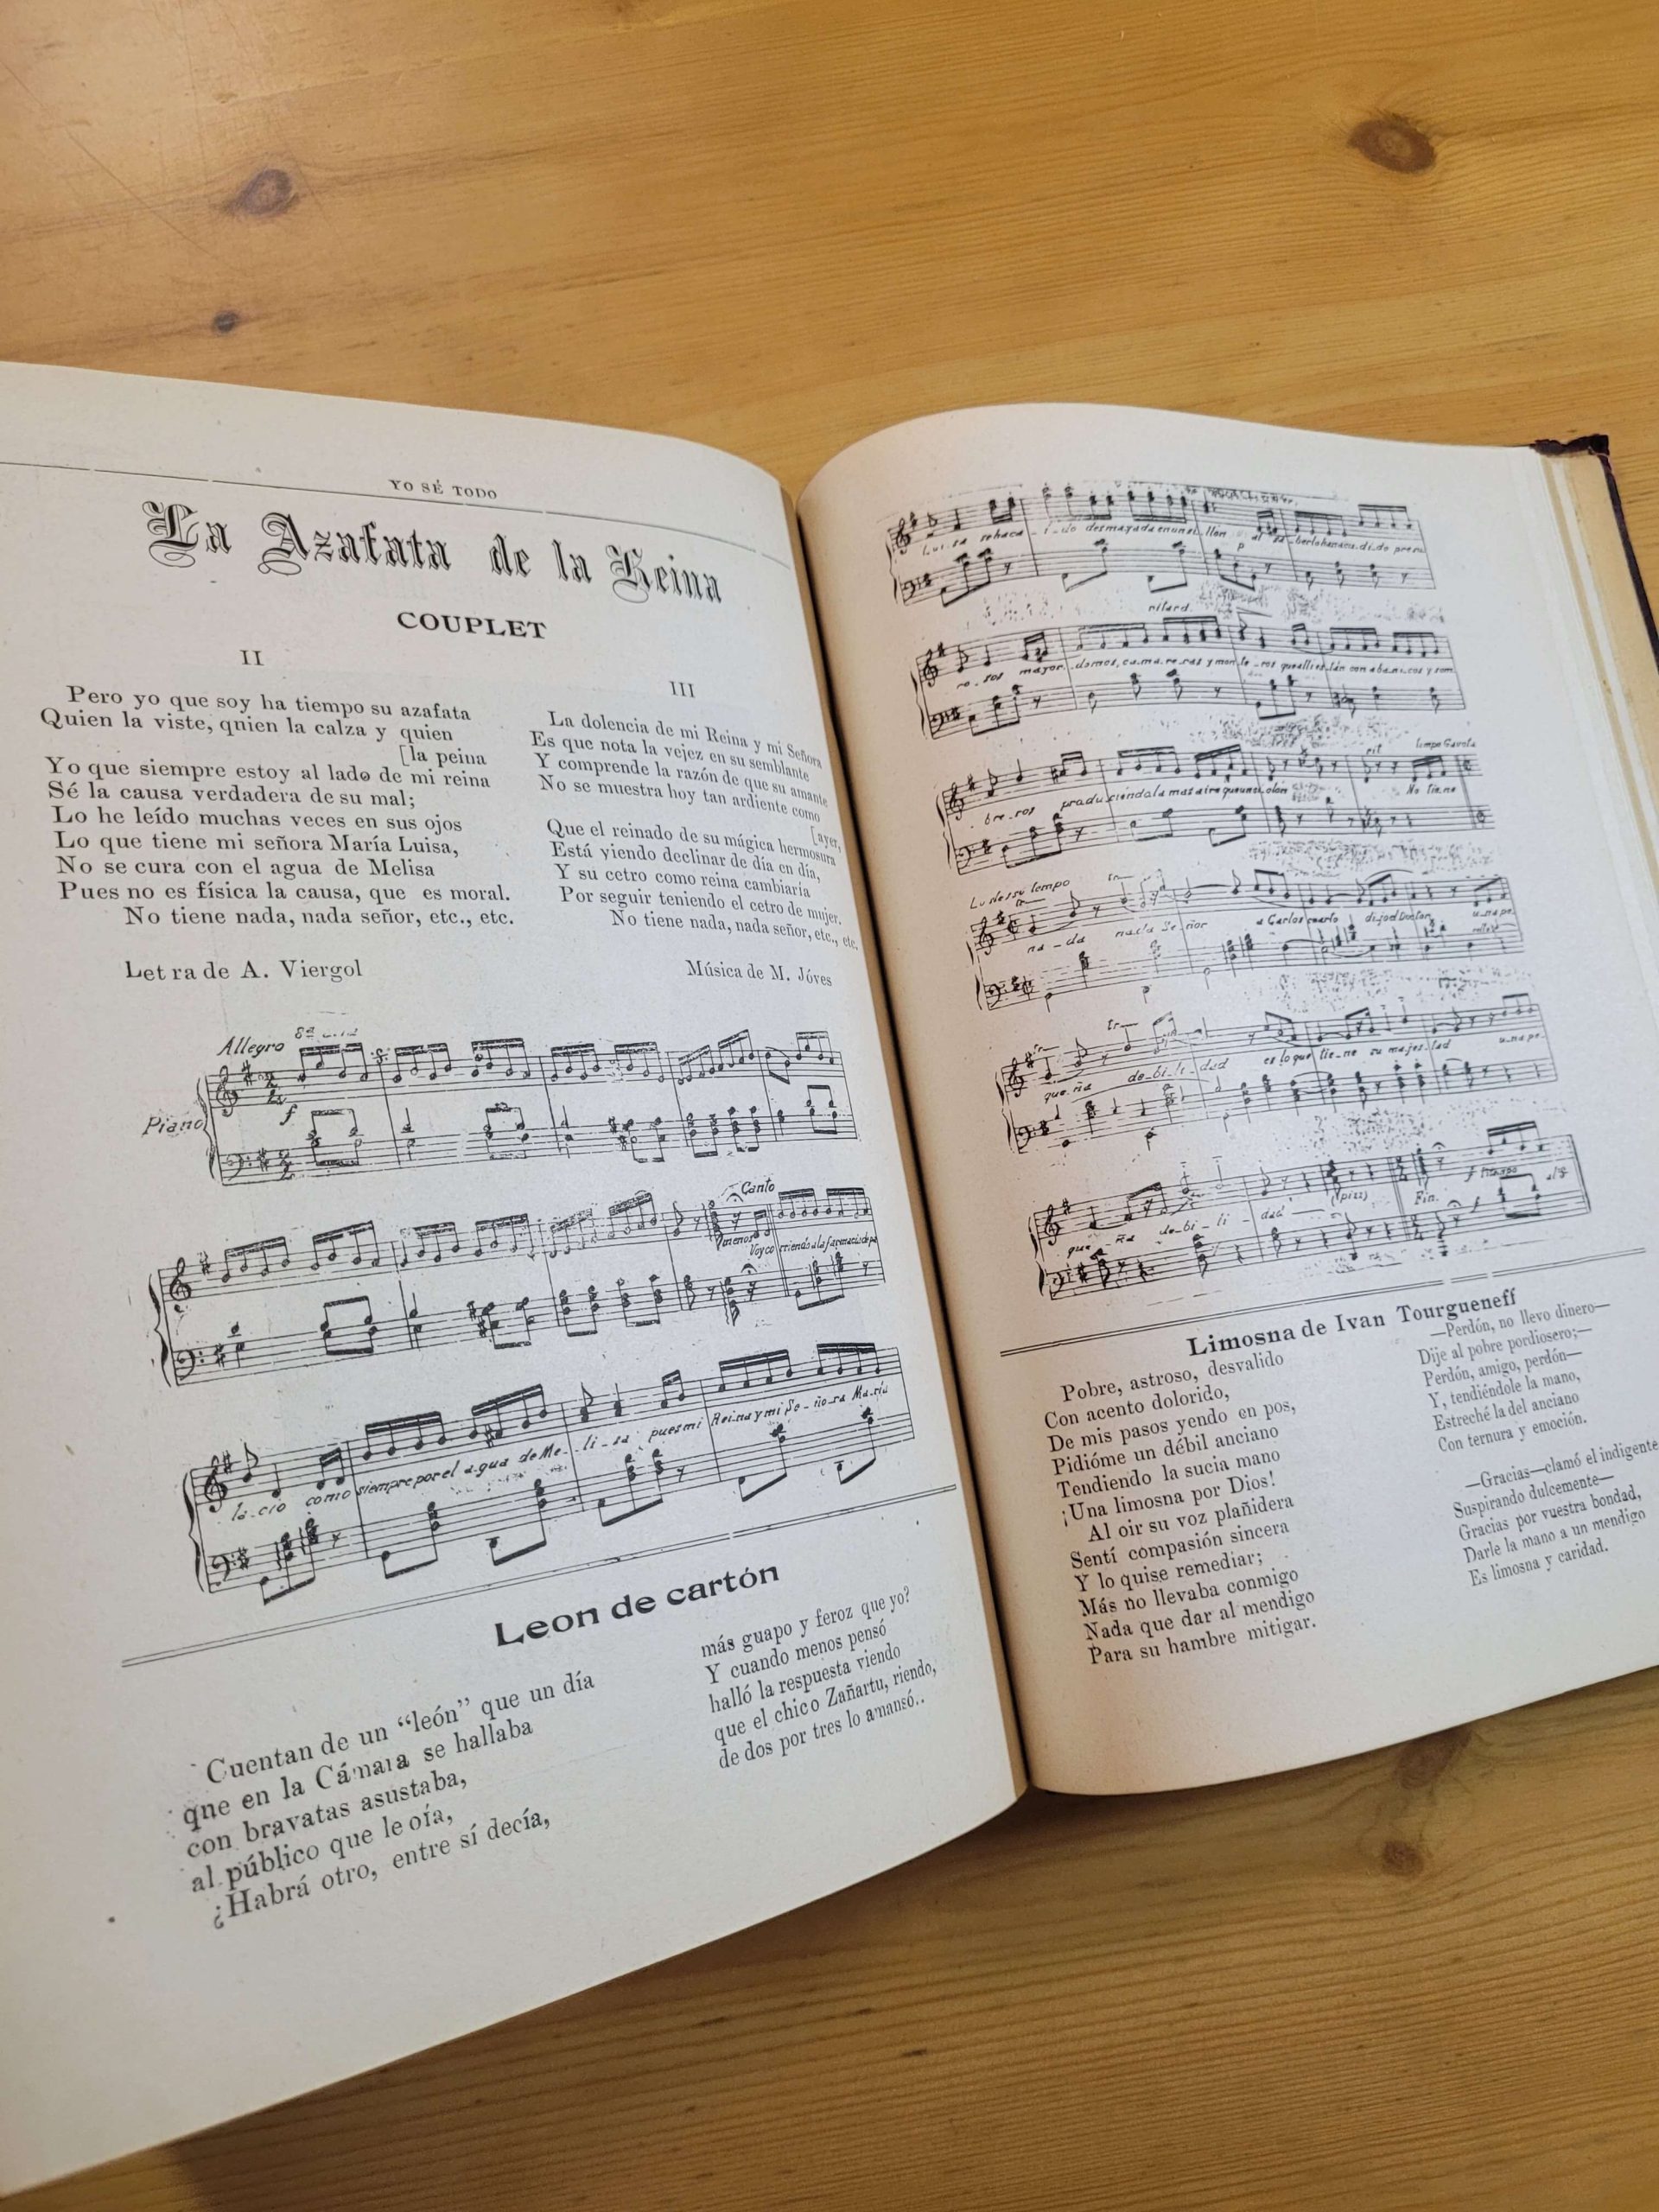 YO SÉ TODO
La Azafata de la Reina
COUPLET
II
Pero yo que soy ha tiempo su azafata
Quien la viste, quien la calza y quien
[la peina
Yo que siempre estoy al lado de mi reina
Sé la causa verdadera de su mal;
Lo he leído muchas veces en sus ojos
Lo que tiene mi señora María Luisa,
No se cura con el agua de Melisa
Pues no es física la causa, que es moral.
No tiene nada, nada señor, etc., etc.
III
La dolencia de mi Reina y mi Señora
Es que nota la vejez en su semblante
Y comprende la razón de que su amante
No se muestra hoy tan ardiente como
[ayer,
Que el reinado de su mágica hermosura
Está viendo declinar de día en día,
Y su cetro como reina cambiaría
Por seguir teniendo el cetro de mujer.
No tiene nada, nada señor, etc., etc.
Letra de A. Viergol
Música de M. Jóves
Allegro
Piano
f
Canto
menos
Voy corriendo a la farmacia de pa
la-cio como siempre por el agua de Me-li-sa pues mi Reina y mi Se-ño-ra María
Leon de cartón
Cuentan de un “león” que un día
qne en la Cámara se hallaba
con bravatas asustaba,
al público que le oía,
¿Habrá otro, entre sí decía,
más guapo y feroz que yo?
Y cuando menos pensó
halló la respuesta viendo
que el chico Zañartu, riendo,
de dos por tres lo amansó..
Lui-sa se ha ca-i-do desmayada en un sillon
p
ritard.
ro-sos mayor-domos, ca-ma-re-ras y mon-te-ros que alli están con abanicos y som
tempo Gavota
bre-ros produciendo la mas aire que un ciclon
No tiene
tempo
na-da nada Se-ñor a Carlos cuarto dijo el Doctor una pe
que-ña de-bi-li-dad es lo que tie-ne su majestad una pe
que-ña de-bi-li-dad
(pizz)
Fin.
f
Limosna de Ivan Tourgueneff
Pobre, astroso, desvalido
Con acento dolorido,
De mis pasos yendo en pos,
Pidióme un débil anciano
Tendiendo la sucia mano
¡Una limosna por Dios!
Al oir su voz plañidera
Sentí compasión sincera
Y lo quise remediar;
Más no llevaba conmigo
Nada que dar al mendigo
Para su hambre mitigar.
—Perdón, no llevo dinero—
Dije al pobre pordiosero;—
Perdón, amigo, perdón—
Y, tendiéndole la mano,
Estreché la del anciano
Con ternura y emoción.
—Gracias—clamó el indigente
Suspirando dulcemente—
Gracias por vuestra bondad,
Darle la mano a un mendigo
Es limosna y caridad.